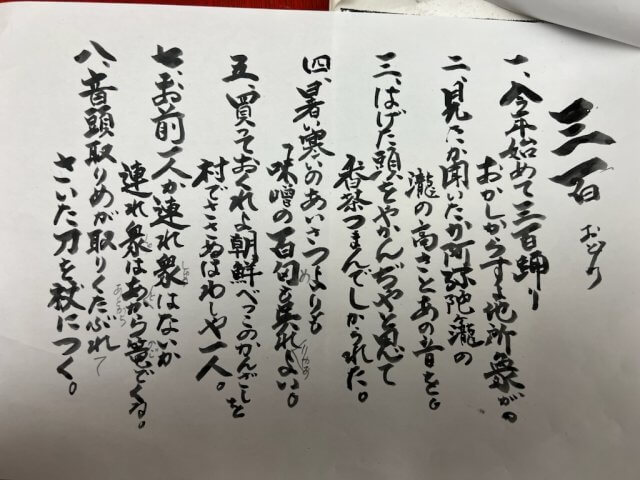 三百おどり
一、今年始めて三百踊り
おかしからずよ地所衆が。
二、見たか聞いたか阿弥陀ヶ瀧の
瀧の高さとあの音を。
三、はげた頭をやかんぢやと思て
香茶つまんでしかられた。
四、暑い寒いのあいさつよりも
味噌の百匁も呉れよい。
め
りゃあ
五、買っておくれよ朝鮮べっこのかんざしを
村でささぬはわしや一人。
七、お前一人か連れ衆はないか
しゅう
連れ衆はあから篭でくる。
あとから
かご
八、音頭取りめが取りくたぶれて
さいた刀を杖につく。